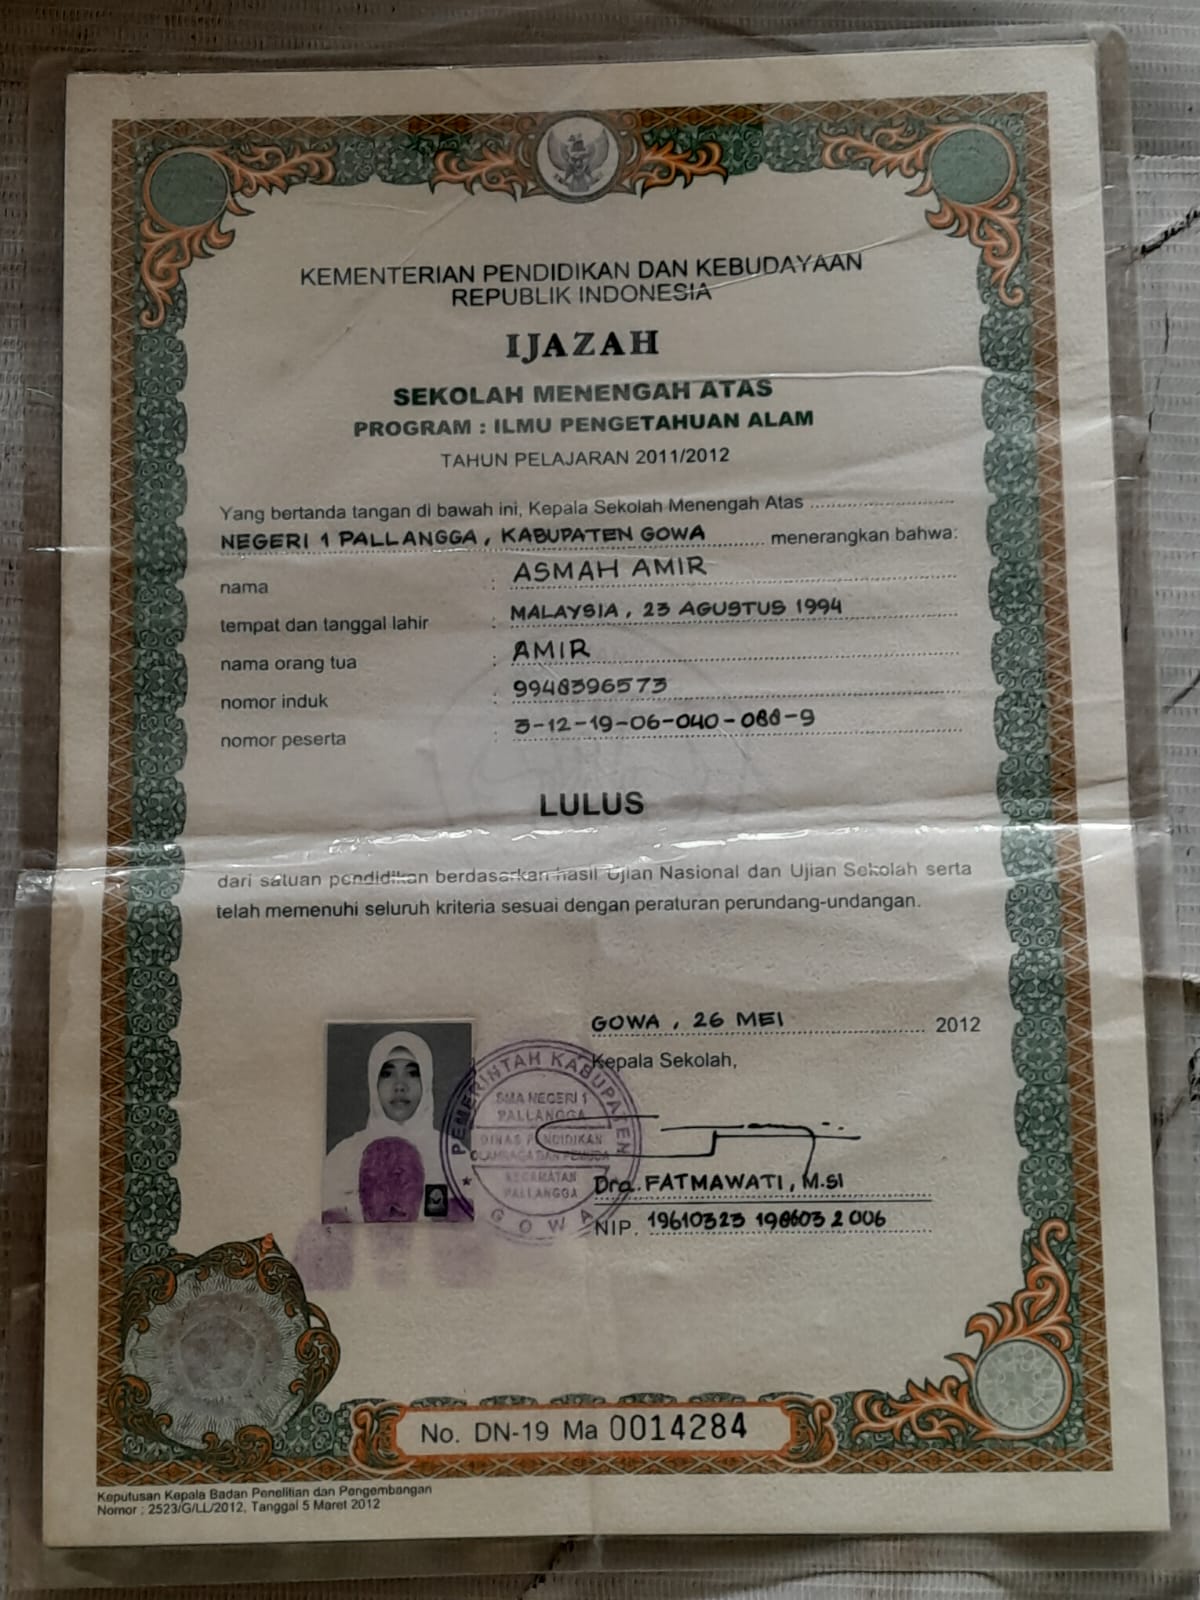 KEMENTERIAN PENDIDIKAN DAN KEBUDAYAAN
REPUBLIK INDONESIA
IJAZAH
SEKOLAH MENENGAH ATAS
PROGRAM : ILMU PENGETAHUAN ALAM
TAHUN PELAJARAN 2011/2012
Yang bertanda tangan di bawah ini, Kepala Sekolah Menengah Atas
NEGERI 1 PALLANGGA, KABUPATEN GOWA menerangkan bahwa:
nama : ASMAH AMIR
tempat dan tanggal lahir : MALAYSIA, 23 AGUSTUS 1994
nama orang tua : AMIR
nomor induk : 9948396573
nomor peserta : 3-12-19-06-040-088-9
LULUS
dari satuan pendidikan berdasarkan hasil Ujian Nasional dan Ujian Sekolah serta
telah memenuhi seluruh kriteria sesuai dengan peraturan perundang-undangan.
GOWA, 26 MEI 2012
Kepala Sekolah,
PEMERINTAH KABUPATEN
SMA NEGERI 1
PALLANGGA
DINAS PENDIDIKAN
OLAHRAGA DAN PEMUDA
KECAMATAN
PALLANGGA
GOWA
Dra. FATMAWATI, M.Si
NIP. 19610323 198603 2 006
No. DN-19 Ma 0014284
Keputusan Kepala Badan Penelitian dan Pengembangan
Nomor : 2523/G/LL/2012, Tanggal 5 Maret 2012